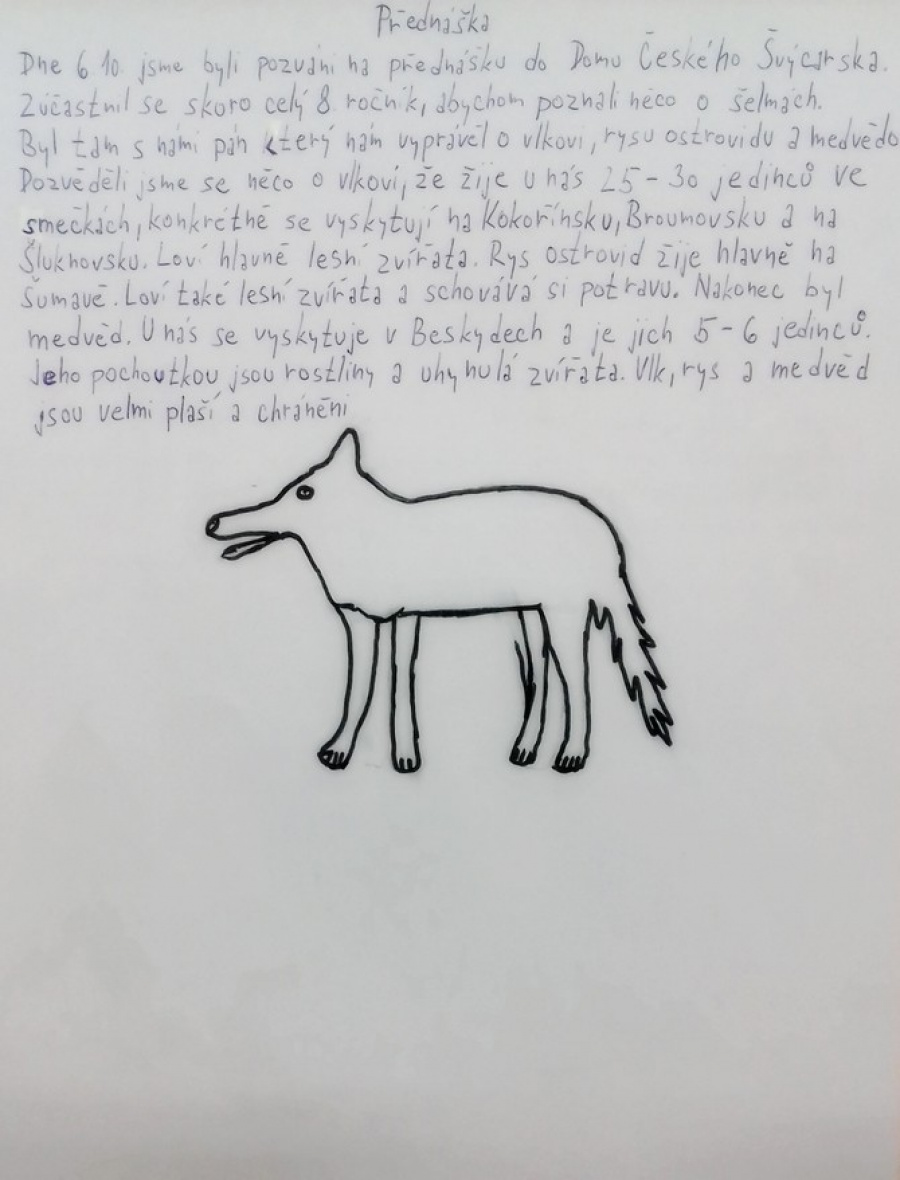 Přednáška
Dne 6.10. jsme byli pozváni na přednášku do Domu Českého Švýcarska.
Zúčastnil se skoro celý 8 ročník, abychom poznali něco o šelmách.
Byl tam s námi pán který nám vyprávěl o vlkovi, rysu ostrovidu a medvědo
Dozvěděli jsme se něco o vlkoví, že žije u nás 25-30 jedinců ve
smečkách, konkrétně se vyskytují na Kokořínsku, Broumovsku a na
Šluknovsku. Loví hlavně lesní zvířata. Rys ostrovid žije hlavně na
Šumavě. Loví také lesní zvířata a schovává si potravu. Nakonec byl
medvěd. U nás se vyskytuje v Beskydech a je jich 5-6 jedinců.
Jeho pochoutkou jsou rostliny a uhynulá zvířata. Vlk, rys a medvěd
jsou velmi plaší a chráněni